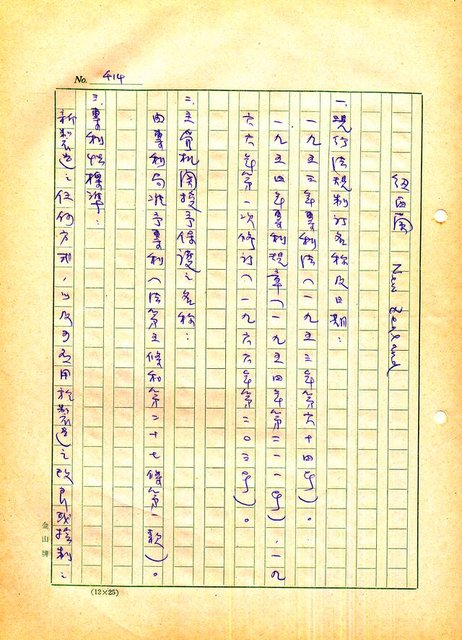 No. 414
紐西蘭 New Zealand
一、現行法規制訂名称及日期:
一九五三年專利法(一九五三年第六十四号)。
一九五四年專利規章(一九五四年第二一一号)，一九
六六年第一次修訂(一九六六年第二〇三号)。
二、主管机関授予保護之名称:
由專利局准予專利(法第五條和第二十七條第一款)。
三、專利性標準:
新製造之任何方式，以及可应用於製造之改良或控制之
金山牌
(12×25)